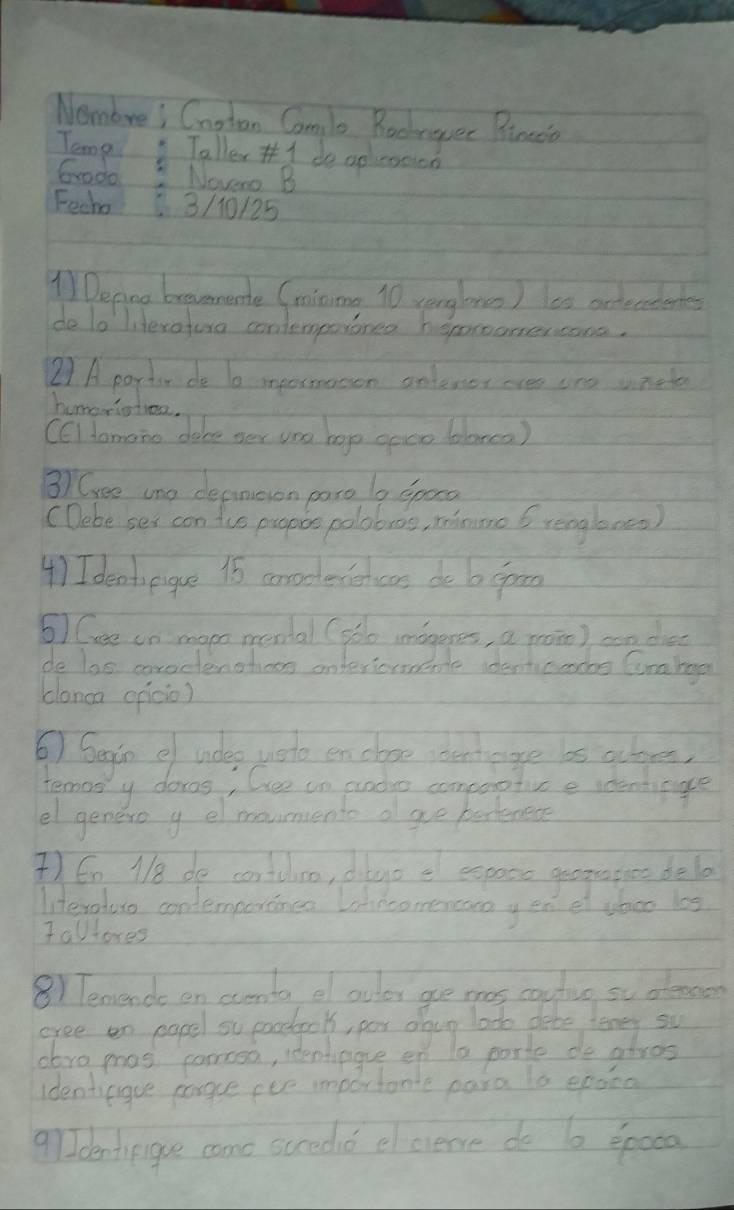 Nombre: Cristian Camilo Rodriguez Pinedo
Tema : Taller #1 de aplicación
Grado : Noveno B
Fecha : 3/10/25
1) Defina brevemente (minimo 10 renglones) los antecedentes
de la literatura contemporánea hispanoamericana.
2) A partir de la informacion anterior cree una viñeta
humoristica.
(El tamaño debe ser una hoja oficio blanca)
3) Cree una definicion para la época
(Debe ser con tus propias palabras, minimo 6 renglones)
4) Identifique 15 caracteristicas de la época
5) Cree un mapa mental (sólo imágenes, a mano) con diez
de las caracteristicas anteriormente identificadas (una hoja
blanca oficio)
6) Según el video visto en clase identifique los autores,
temas y obras, Cree un cuadro comparativo e identifique
el genero y el movimiento al que pertenece
7) En 1/8 de cartulina, dibuje el espacio geografico de la
literatura contemporánea Latinoamericana y en el los
7 autores
8) Teniendo en cuenta el autor que mas cautivo su atencion
cree en papel su , por algun lado debe tener su
obra mas famosa, identifique en la parte de atras
identifique porque fue importante para la epoca
9) Identifique como sucedió el cierre de la época